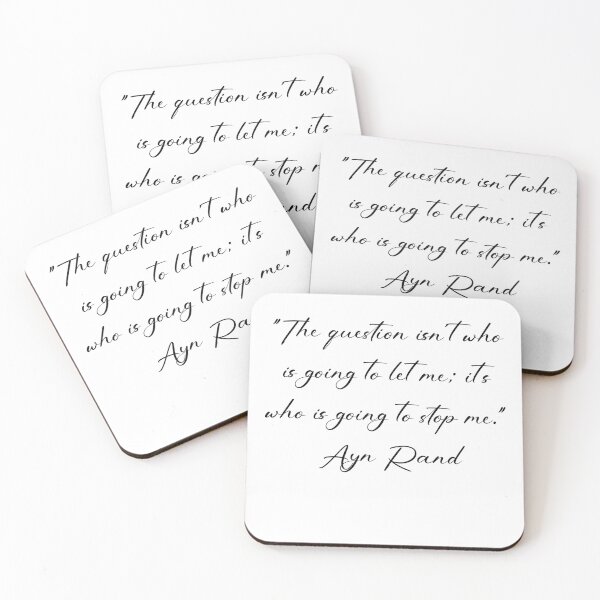 "The question isn't who
is going to let me; it's
who is going to stop m
nd
"The question isn't who
is going to let me; it's
who is going to stop me."
Ayn Rand
"The question isn't who
is going to let me; it's
who is going to stop me."
Ayn Ra
"The question isn't who
is going to let me; it's
who is going to stop me."
Ayn Rand